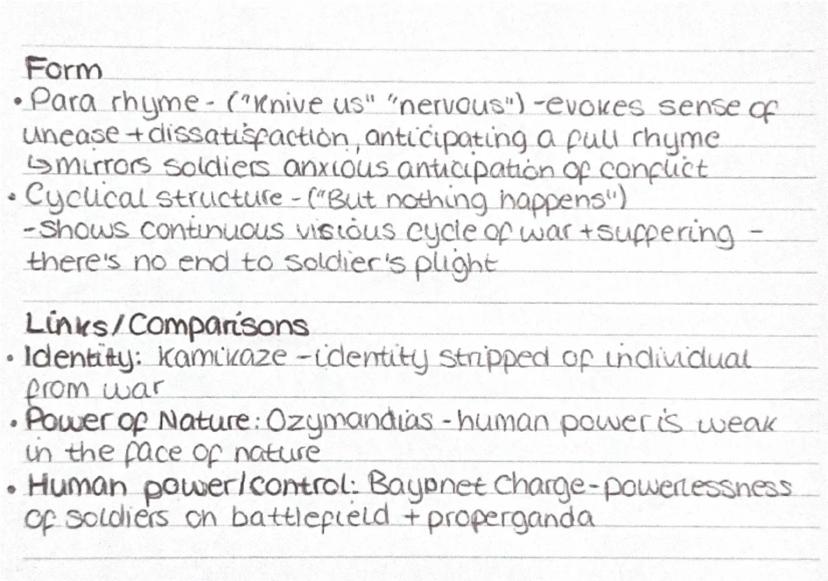 Form
• Para rhyme - ("knive us" "nervous") - evokes sense of
unease + dissatisfaction, anticipating a full rhyme
↳ mirrors soldiers anxious anticipation of conflict
• Cyclical structure - ("But nothing happens")
- Shows continuous viscious cycle of war + suffering -
there's no end to soldier's plight
Links/Comparisons
• Identity: Kamikaze - identity stripped of individual
from war
• Power of Nature: Ozymandias - human power is weak
in the face of nature
• Human power/control: Bayonet Charge - powerlessness
of soldiers on battlefield + properganda